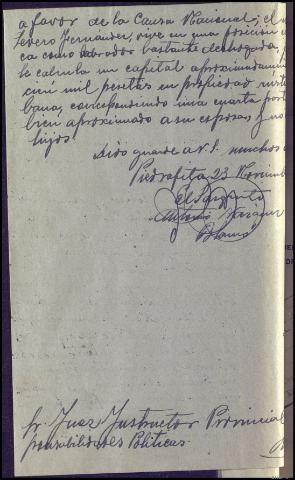 a favor de la Causa Nacional; el
Severo Fernandez, vive en una posición
ca como labrador bastante desahogada,
le calcula un capital aproximadamen
mil pesetas en propiedad rústi
bana, correspondiendo una cuarta part
bien aproximado a su esposa, y no
hijos
Dios guarde a V.S. muchos a
Piedrafita 23 Noviemb
El Sargento
Antonio Vázquez
Blanco
Sr. Juez Instructor Provincial
ponsabilidades Políticas.